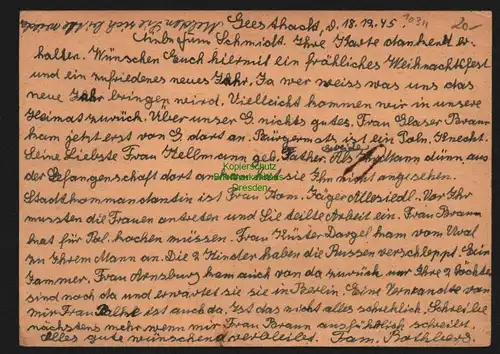 Melden Sie sich bitte
Geesthacht, d. 18.12.45 20-
Liebe Fam Schmidt. Ihre Karte dankend er-
halten. Wünschen Euch hiermit ein fröhliches Weihnachtsfest
und ein zufriedenes neues Jahr. Ja wer weiss was uns das
neue Jahr bringen wird. Vielleicht kommen wir in unsere
Heimat zurück. Über unser G. nichts gutes. Frau Glaser Braun
kam jetzt erst von G. dort an. Bürgermstr. ist ein Poln. Knecht.
Seine Liebste Frau Kellmann geb. Father. Als Ihr Mann dünn aus
der Gefangenschaft dort ankam hat sie Ihn nicht angesehen.
Kopierschutz
Briefmarken
Dresden
Stadtkommandantin ist Frau Hom. Jäger Allesiedl. Vor Ihr
mussten die Frauen antreten und Sie teilte Arbeit ein. Frau Braun
hat für Pol. kochen müssen. Frau Küster Dargel kam vom Ural
zu Ihrem Mann an. Die 2 Kinder haben die Russen verschleppt. Ein
Jammer. Frau Arnsburg kam auch von da zurück nur Ihre 2 Töchter
sind noch da und erwartet sie in Berlin. Eine Verwandte von
mir Frau ist auch da. Ist das nicht alles schrecklich. Schreibe
nächstens mehr wenn mir Frau Braun ausführlich schreibt.
Alles gute wünschend verbleibt. Fam. Bothberg.